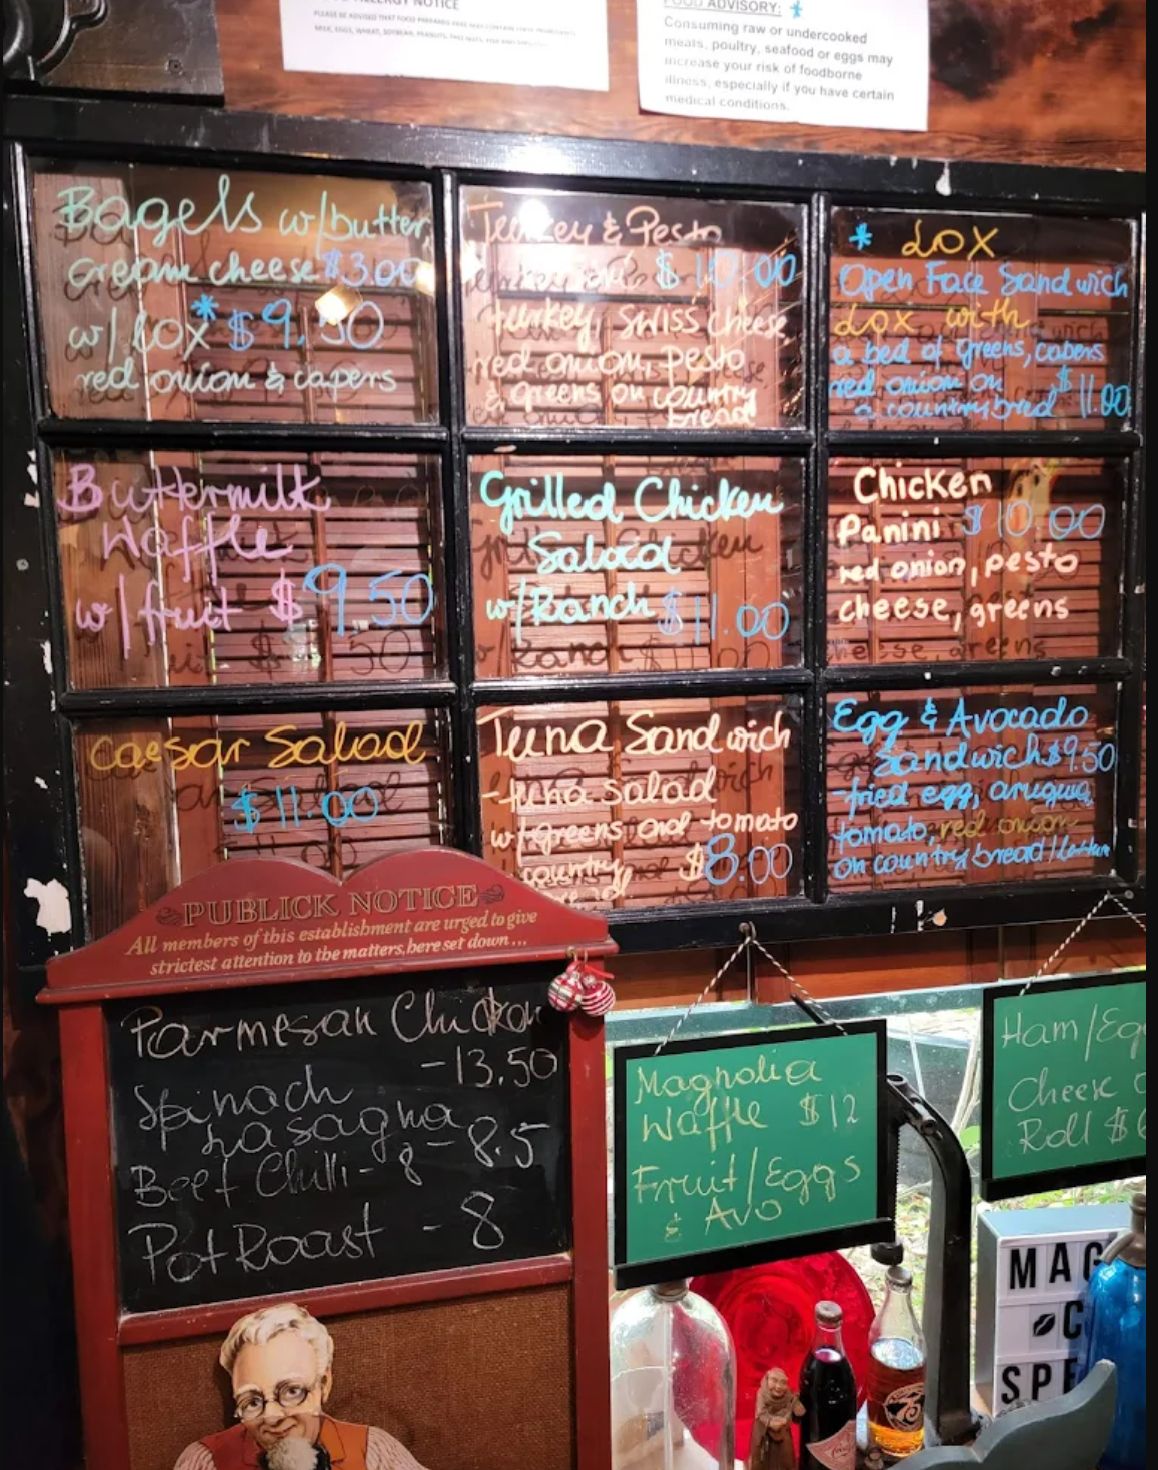 ALLERGY NOTICE
PLEASE BE ADVISED THAT FOOD PREPARED HERE MAY CONTAIN THESE INGREDIENTS:
MILK, EGGS, WHEAT, SOYBEAN, PEANUTS, TREE NUTS, FISH AND SHELLFISH
FOOD ADVISORY: *
Consuming raw or undercooked
meats, poultry, seafood or eggs may
increase your risk of foodborne
illness, especially if you have certain
medical conditions.
Bagels w/butter
cream cheese $3.00
w/lox* $9.50
red onion & capers
Turkey & Pesto
$10.00
turkey, swiss cheese
red onion, pesto
& greens on country
bread
* LOX
Open Face Sandwich
Lox with
a bed of greens, capers
red onion on
a country bred $11.00
Buttermilk
Waffle
w/fruit $9.50
Grilled Chicken
Salad
w/Ranch $11.00
Chicken
Panini $10.00
red onion, pesto
cheese, greens
Caesar Salad
$11.00
Tuna Sandwich
-tuna salad
w/greens and tomato
country $8.00
Egg & Avocado
Sandwich $9.50
-fried egg, arugula,
tomato, red onion
on country bread/
PUBLICK NOTICE
All members of this establishment are urged to give
strictest attention to the matters, here set down...
Parmesan Chicken
-13.50
Spinach
Lasagna -8.5
Beef Chilli - 8
Pot Roast - 8
Magnolia
Waffle $12
Fruit/Eggs
& Avo
Ham/Eg
Cheese
Roll $6
MAG
C
SPE
75